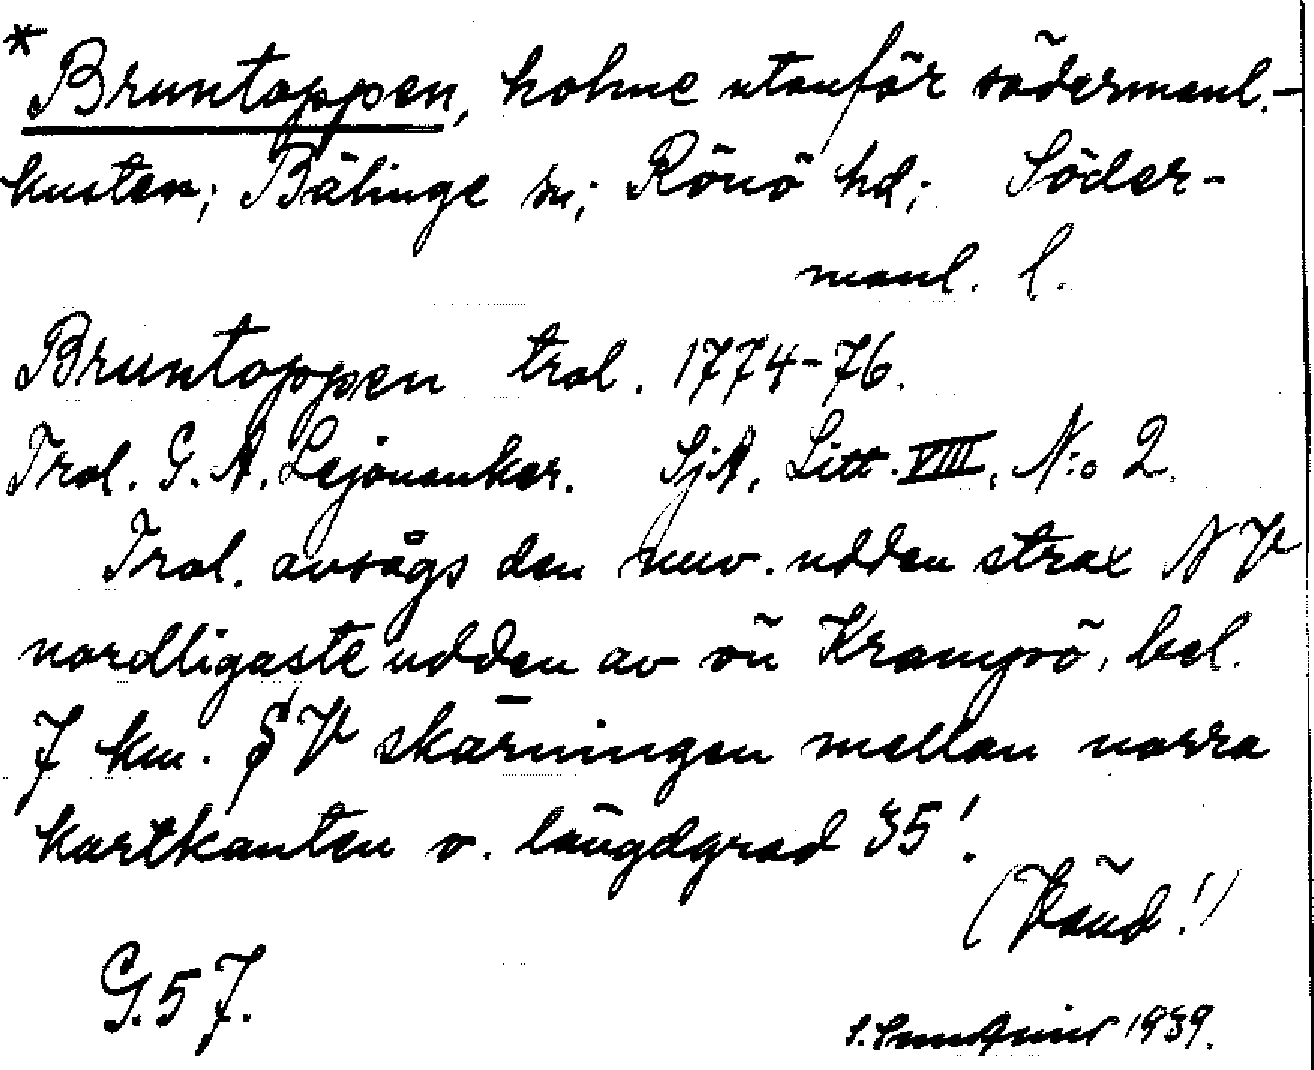 * Bruntoppen, holme utanför södermanl.-
kusten; Bälinge sn; Rönö hd; Söder-
manl. l.
Bruntoppen trol. 1774-76.
Trol. G. A. Lejonanker. SjA. Litt. VIII, N:o 2.
Trol. avsågs den nuv. udden strax NV
nordligaste udden av ön Krampö, bel.
7 km. SV skärningen mellan norra
kartkanten o. längdgrad 35'.
(Vänd!)
G. 57.
1939.